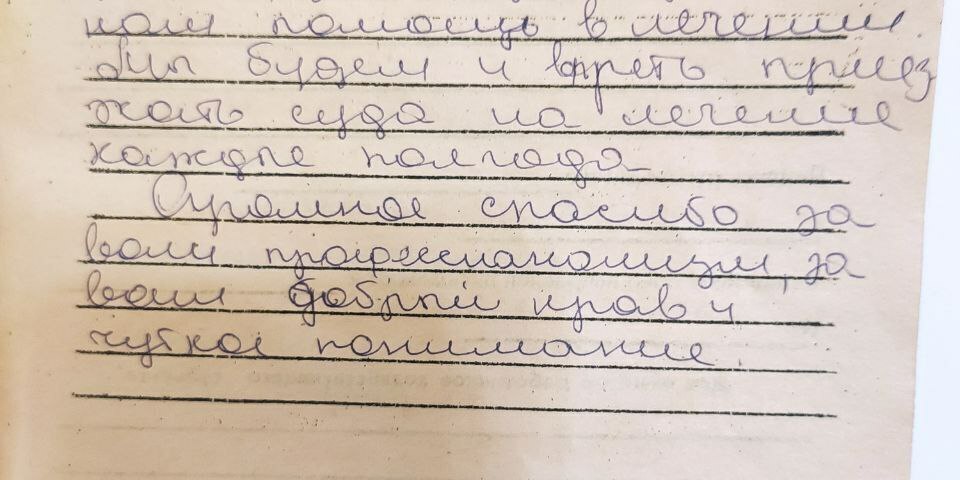 нам помощь в лечении.
Мы будем и впреть приез
жать суда на лечение
каждые полгода
Огромное спасибо за
ваш професианализм, за
ваш добрый нрав и
чуткое понимание.